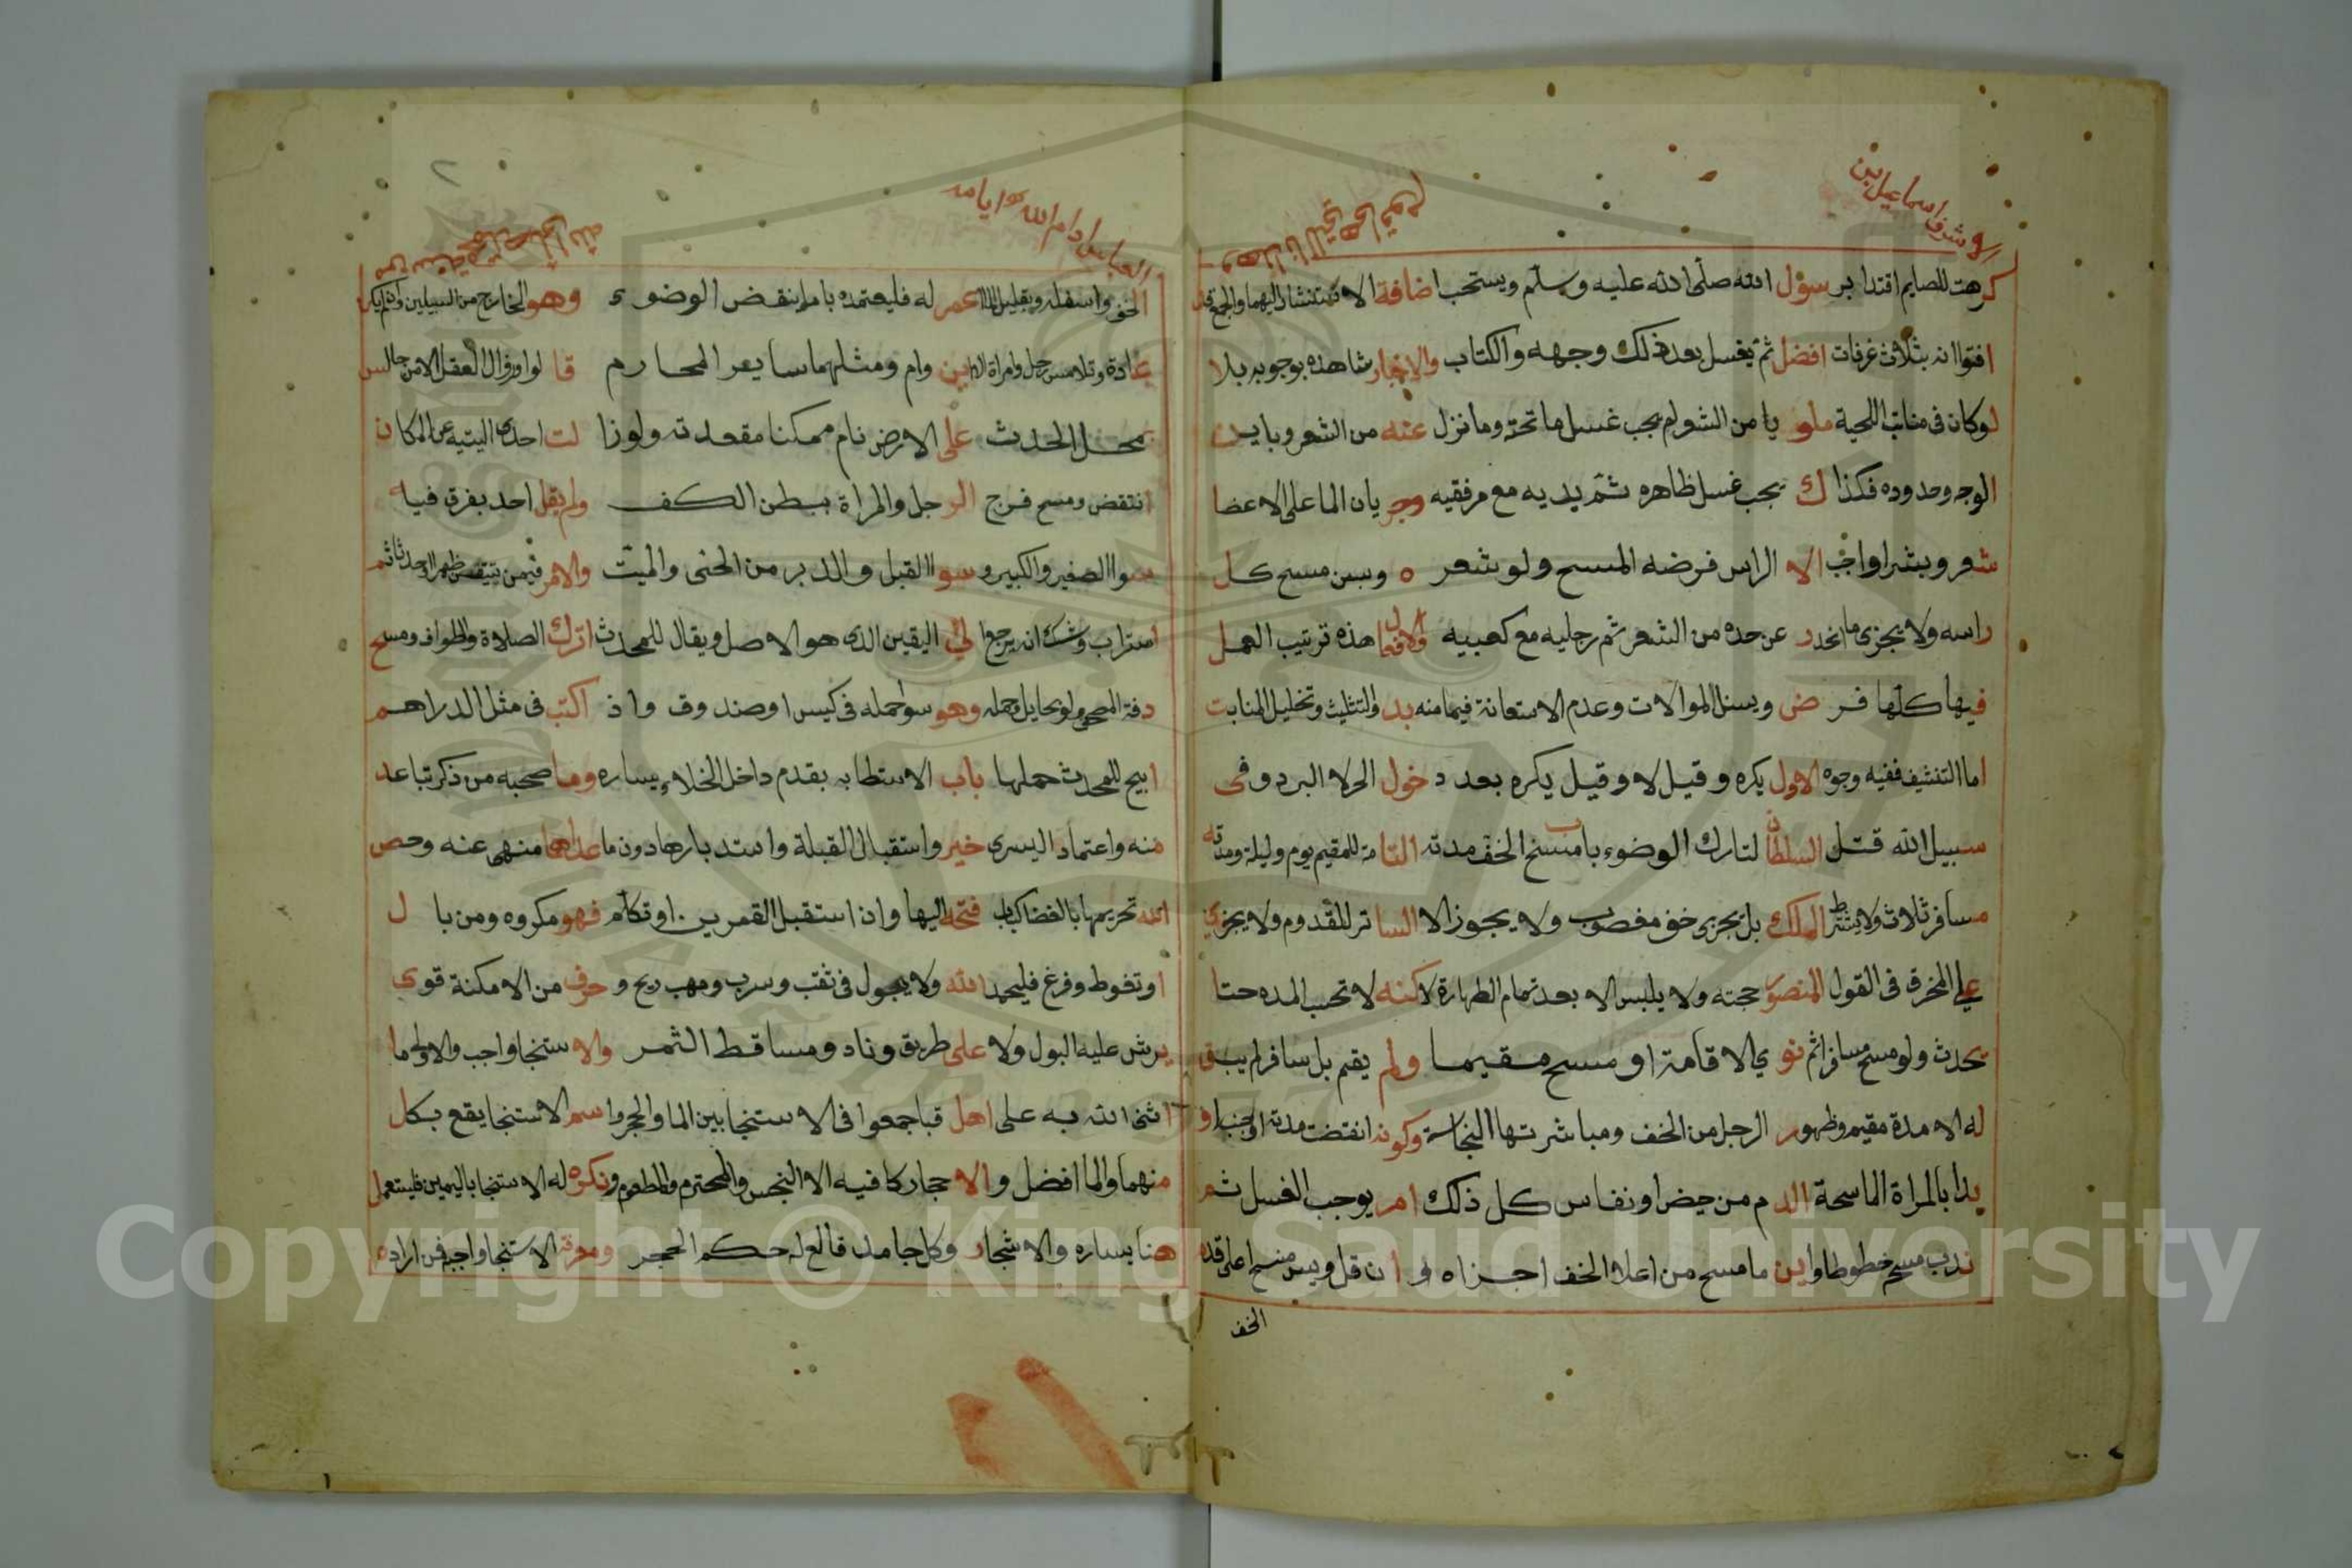 كرهت للصايم اقتدا برسول الله صلى الله عليه وسلم ويستحب اضافة الاستنشاق اليهما والجمع قد
افتوا انه بثلاث غرفات افضل ثم يغسل بعد ذلك وجهه والكتاب والاخبار شاهده بوجوبه بلا
لوكان في منابت اللحية ملو يا من الشعر لم يجب غسل ما تحته وما نزل عنه من الشعر وباين
الوجه وحدوده فكذا ك يجب غسل ظاهره ثم يديه مع مرفقيه وجريان الما على الاعضا
شعر وبشرا واجب الا الراس فرضه المسح ولو شعره وسن مسح كل
راسه ولا يجزي ما انحدر عن حده من الشعر ثم رجليه مع كعبيه والافعال هذه ترتيب العمل
فيها كلها فرض ويسن الموالات وعدم الاستعانة فيما منه بد والتثليث وتخليل المنابت
اما التنشيف ففيه وجوه الاول يكره وقيل لا وقيل يكره بعد دخول الحر لا البرد وفي
سبيل الله قتل السلطان لتارك الوضوء باب مسح الخف مدته التامة للمقيم يوم وليلة ومدته
مسافر ثلاث ولا يشترط الملك بل يجزي خف مغصوب ولا يجوز الا الساتر للقدوم ولا يجزي
على المخرق في القول المنصور حجته ولا يلبس الا بعد تمام الطهارة لاكنه لا تحسب المده حتا
يحدث ولو مسح مسافرا ثم نوي الاقامة او مسح مقيما ولم يقم بل سافر لم يبق
له الا مدة مقيم وظهور الرجل من الخف ومباشرتها النجاسة وكونه انقضت مدته او جنب او
بدا بالمراة الماسحة الدم من حيض او نفاس كل ذلك امر يوجب الغسل ثم
ندب مسح خطوطا واين ما مسح من اعلا الخف اجزاه وان قل ويسن مسح اعلى قده
الخف
الخف واسفله وبقليل الماء عمر له فليعتمده باب ما ينقض الوضوء وهو الخارج من السبيلين وان لم يكن
عادة وتلامس رجل وامراة لابن وام ومثلهما ساير المحارم قالوا وزوال العقل الا من جالس
بمحل الحدث على الارض نام ممكنا مقعدته ولو زالت احدى اليتيه عن المكان
انتقض ومسح فرج الرجل والمراة ببطن الكف ولم يقل احد بفرق فيه
سوا الصغير والكبير وسوا القبل والدبر من الحي والميت والامر فيمن تيقن طهرا او حدثا ثم
استراب وشك انه يرجع الى اليقين الذي هو الاصل ويقال للمحدث اترك الصلاة والطواف ومسح
دفة المصحف ولو بحايل وحمله وهو سوا حمله في كيس او صندوق واذ اكتب في مثل الدراهم
ابيح للمحدث حملها باب الاستطابه يقدم داخل الخلاء يساره وما صحبه من ذكر تباعد
منه واعتماد اليسرى خير واستقبال القبلة واستدبارها دون ما عداهما منهي عنه وخص
الله تحريمها بالفضا كباب فتحه اليها وان استقبل القمرين او تكلم فهو مكروه ومن بال
او تغوط وفرغ فليحمد الله ولا يبول في ثقب وسرب ومهب ريح وحرف من الامكنة قوي
يرش عليه البول ولا على طريق وناد ومساقط الثمر والاستنجا واجب والاولى ما
اثنى الله به على اهل قبا جمعوا في الاستنجا بين الما والحجر واسم الاستنجا يقع بكل
منهما والما افضل والاحجار كافيه الا النجس والمحترم والمطعوم ونكره له الاستنجا باليمين فليستعمل
هنا يساره والاشجار وكل جامد قالع له حكم الحجر ومعرفة الاستنجا واجب فمن اراده
Copyright © King Saud University